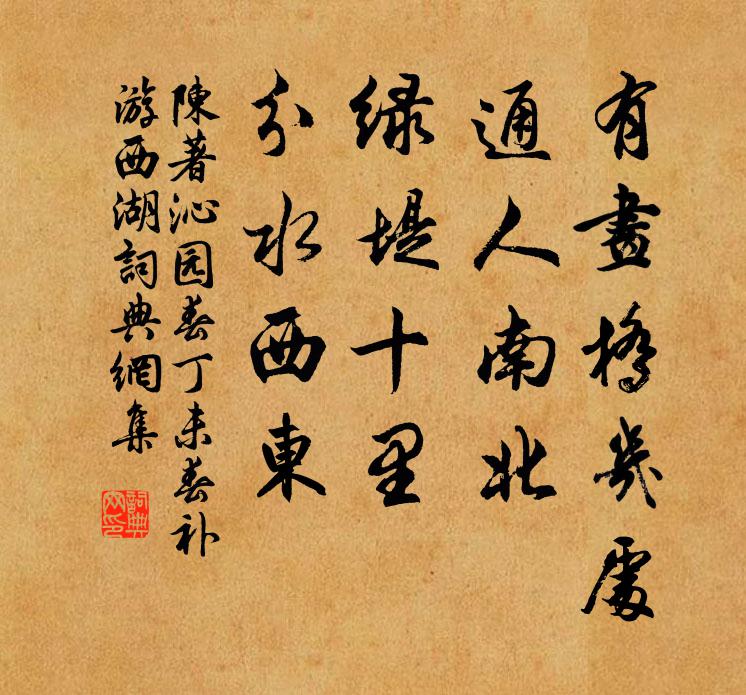 有畫橋幾處
通人南北
緑堤十里
分水西東
陳著沁园春丁未春补
游西湖詞典網集
詞典网印